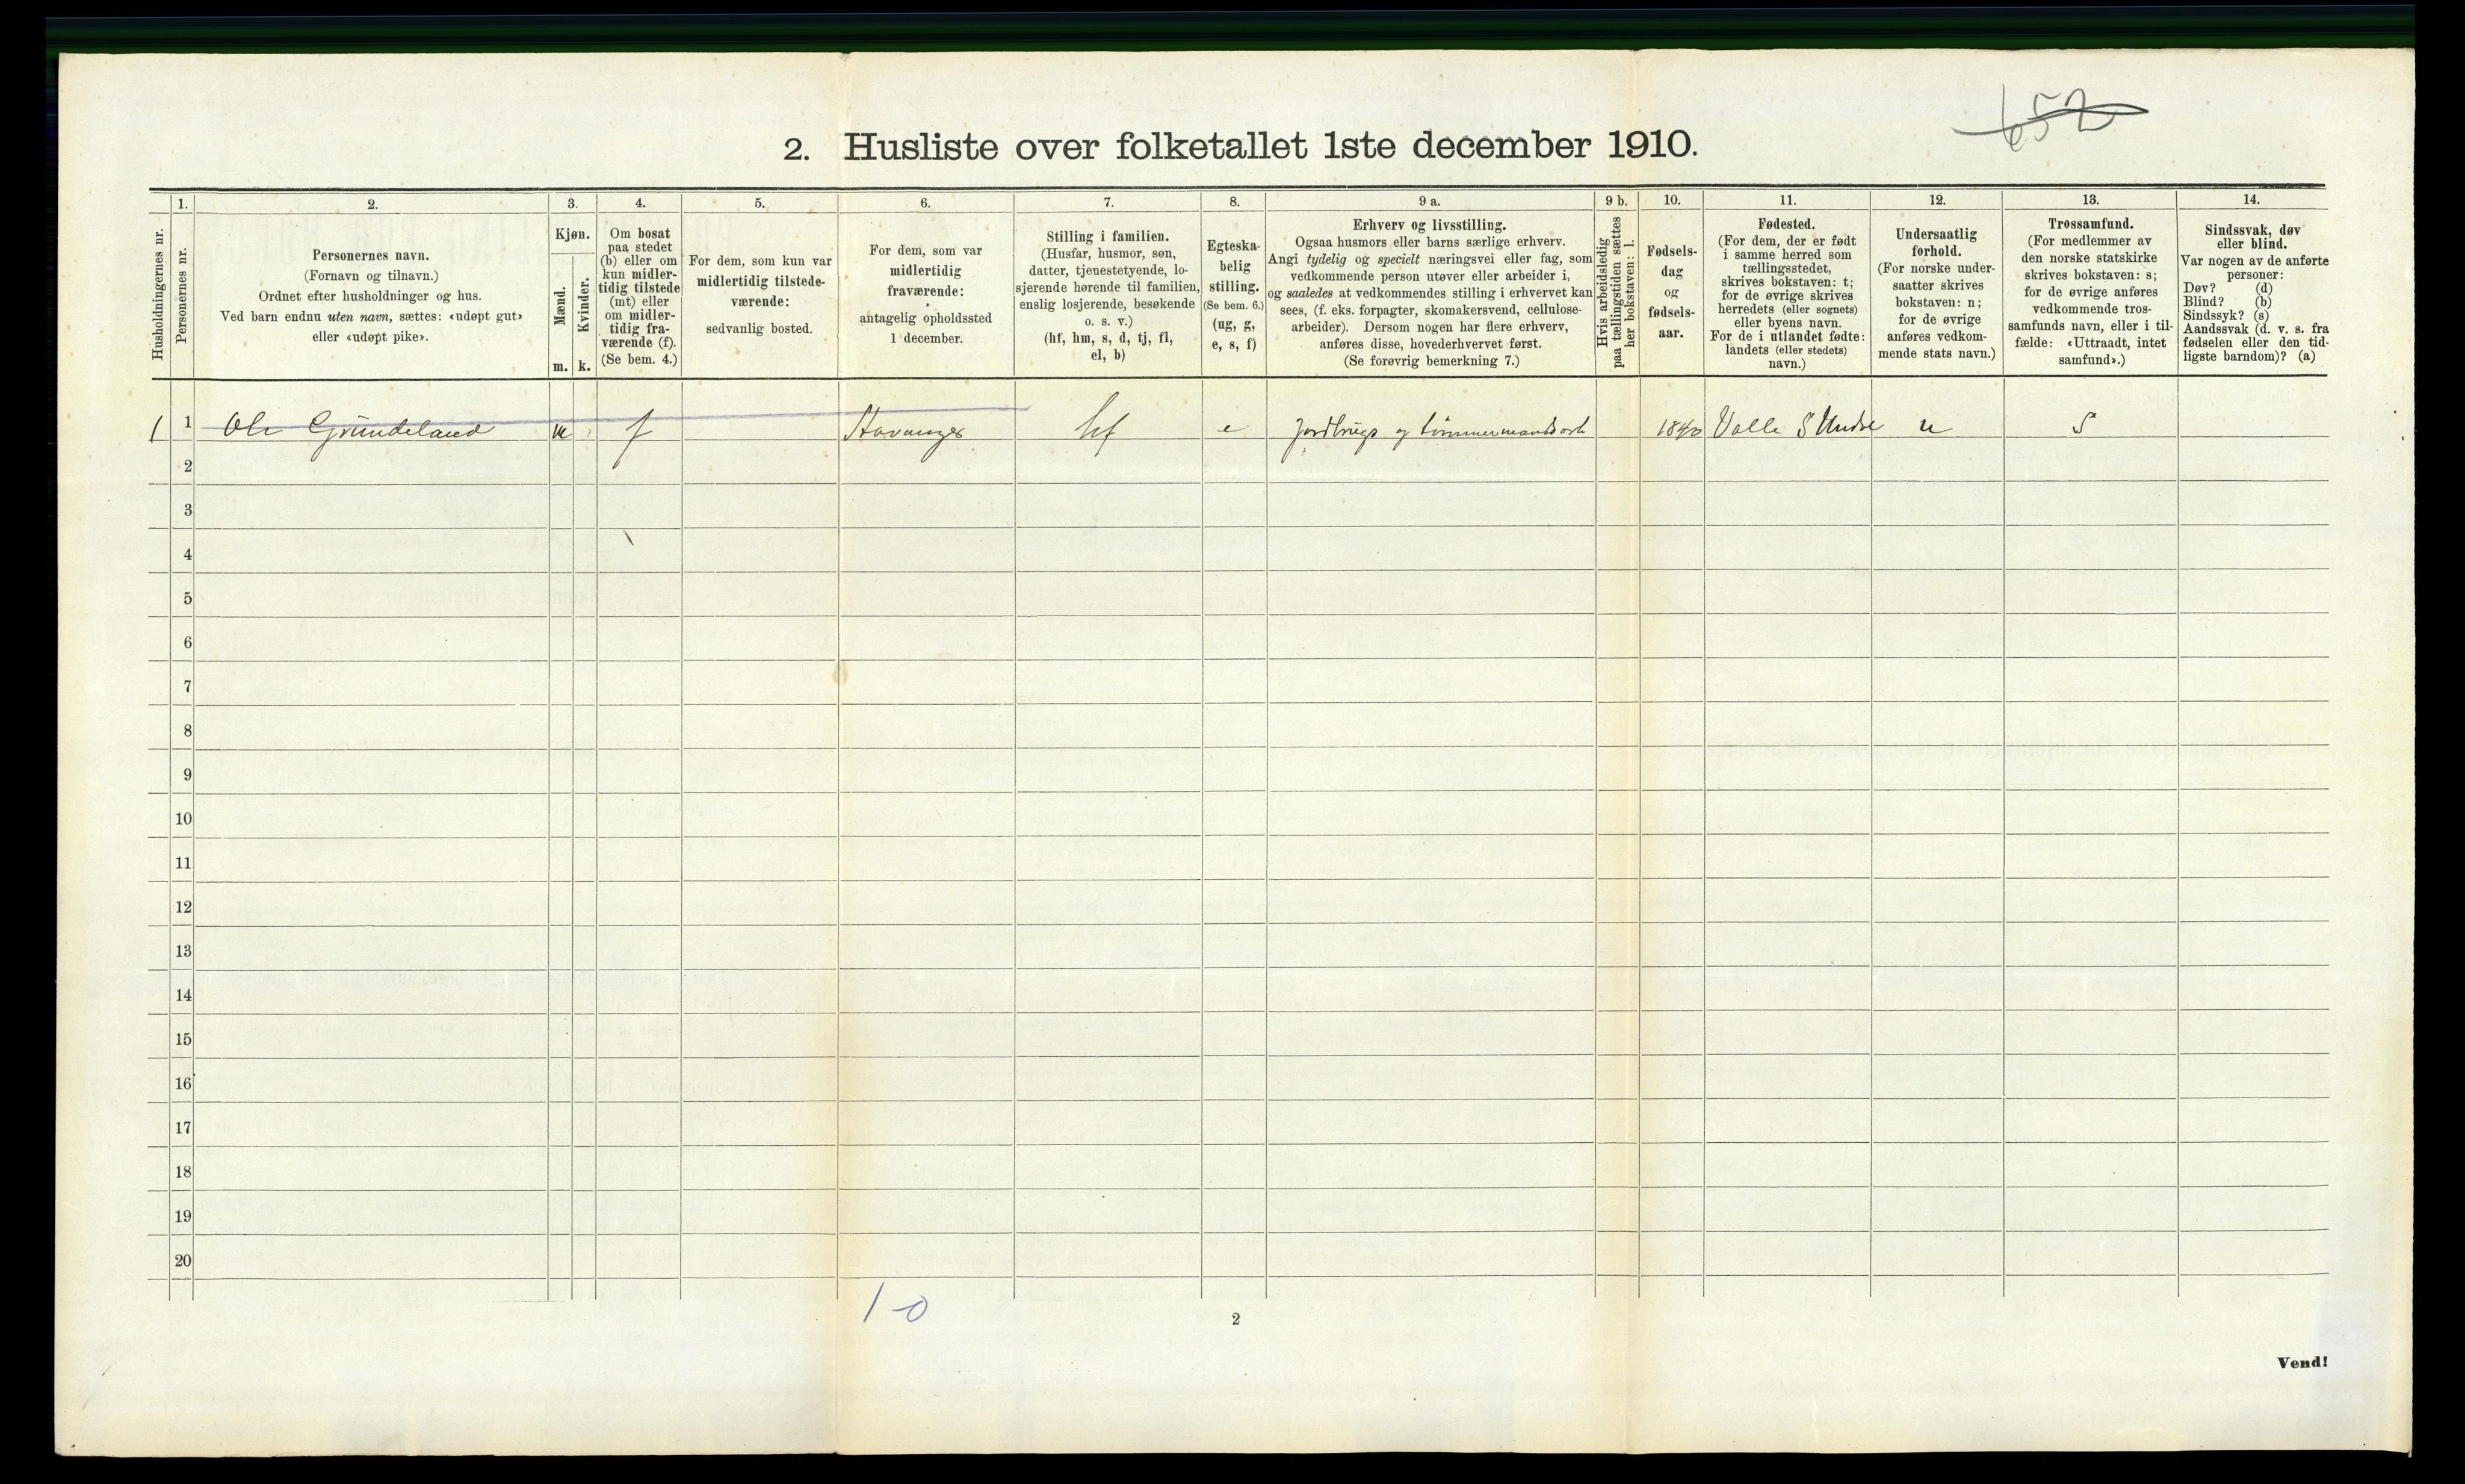 652
2. Husliste over folketallet 1ste december 1910.
Husholdningernes nr.
1.
Personernes nr.
2.
Personernes navn.
(Fornavn og tilnavn.)
Ordnet efter husholdninger og hus.
Ved barn endnu uten navn, sættes: «udøpt gut»
eller «udøpt pike».
3.
Kjøn.
Mænd.
Kvinder.
m. k.
4.
Om bosat
paa stedet
(b) eller om
kun midler-
tidig tilstede
(mt) eller
om midler-
tidig fra-
værende (f).
(Se bem. 4.)
5.
For dem, som kun var
midlertidig tilstede-
værende:
sedvanlig bosted.
6.
For dem, som var
midlertidig
fraværende:
antagelig opholdssted
1 december.
7.
Stilling i familien.
(Husfar, husmor, søn,
datter, tjenestetyende, lo-
sjerende hørende til familien,
enslig losjerende, besøkende
o. s. v.)
(hf, hm, s, d, tj, fl,
el, b)
8.
Egteska-
belig
stilling.
(Se bem. 6.)
(ug, g,
e, s, f)
9 a.
Erhverv og livsstilling.
Ogsaa husmors eller barns særlige erhverv.
Angi tydelig og specielt næringsvei eller fag, som
vedkommende person utøver eller arbeider i,
og saaledes at vedkommendes stilling i erhvervet kan
sees, (f. eks. forpagter, skomakersvend, cellulose-
arbeider). Dersom nogen har flere erhverv,
anføres disse, hovederhvervet først.
(Se forøvrig bemerkning 7.)
9 b.
Hvis arbeidsledig
paa tællingstiden sættes
her bokstaven: l.
10.
Fødsels-
dag
og
fødsels-
aar.
11.
Fødested.
(For dem, der er født
i samme herred som
tællingsstedet,
skrives bokstaven: t;
for de øvrige skrives
herredets (eller sognets)
eller byens navn.
For de i utlandet fødte:
landets (eller stedets)
navn.)
12.
Undersaatlig
forhold.
(For norske under-
saatter skrives
bokstaven: n;
for de øvrige
anføres vedkom-
mende stats navn.)
13.
Trossamfund.
(For medlemmer av
den norske statskirke
skrives bokstaven: s;
for de øvrige anføres
vedkommende tros-
samfunds navn, eller i til-
fælde: «Uttraadt, intet
samfund».)
14.
Sindssvak, døv
eller blind.
Var nogen av de anførte
personer:
Døv? (d)
Blind? (b)
Sindssyk? (s)
Aandssvak (d. v. s. fra
fødselen eller den tid-
ligste barndom)? (a)
1 1 Ole Grundeland m f Stavanger hf e Jordbrugs og tømmermandsarb 1840 Valle S Undse n S
2
3
4
5
6
7
8
9
10
11
12
13
14
15
16
17
18
19
20
1-0
2
Vend!